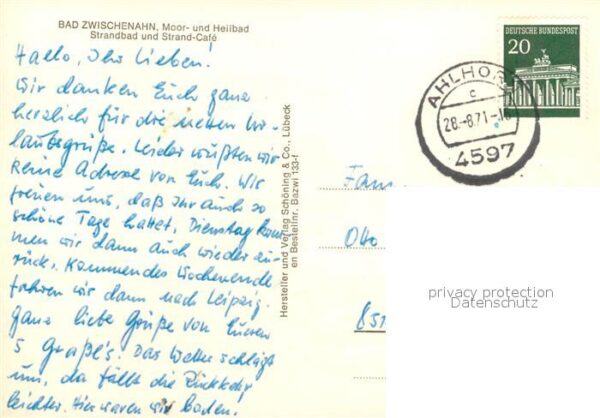 BAD ZWISCHENAHN, Moor- und Heilbad
Strandbad und Strand-Café
Hallo, Ihr Lieben!
Wir danken Euch ganz
herzlich für die netten Ur-
laubsgrüße. Leider wußten wir
keine Adresse von Euch. Wir
freuen uns, daß Ihr auch so
schöne Tage hattet. Dienstag kom-
men wir dann auch wieder zu-
rück. Kommendes Wochenende
fahren wir dann nach Leipzig.
Ganz liebe Grüße von Euren
5 Graße's. Das Wetter schlägt
um, da fällt die Rückkehr
leichter. Hier waren wir baden.
Hersteller und Verlag Schöning & Co., Lübeck
en Bestellnr. Bazwi 133-f
DEUTSCHE BUNDESPOST
20
AHLHORN
c
28.-8.71.-16
4597
Fam
Otto
851
privacy protection
Datenschutz